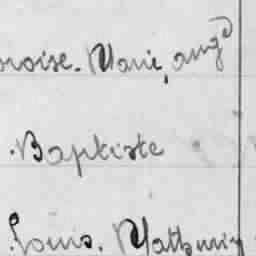 Marie, ang
Baptiste
Louis. Mathurin